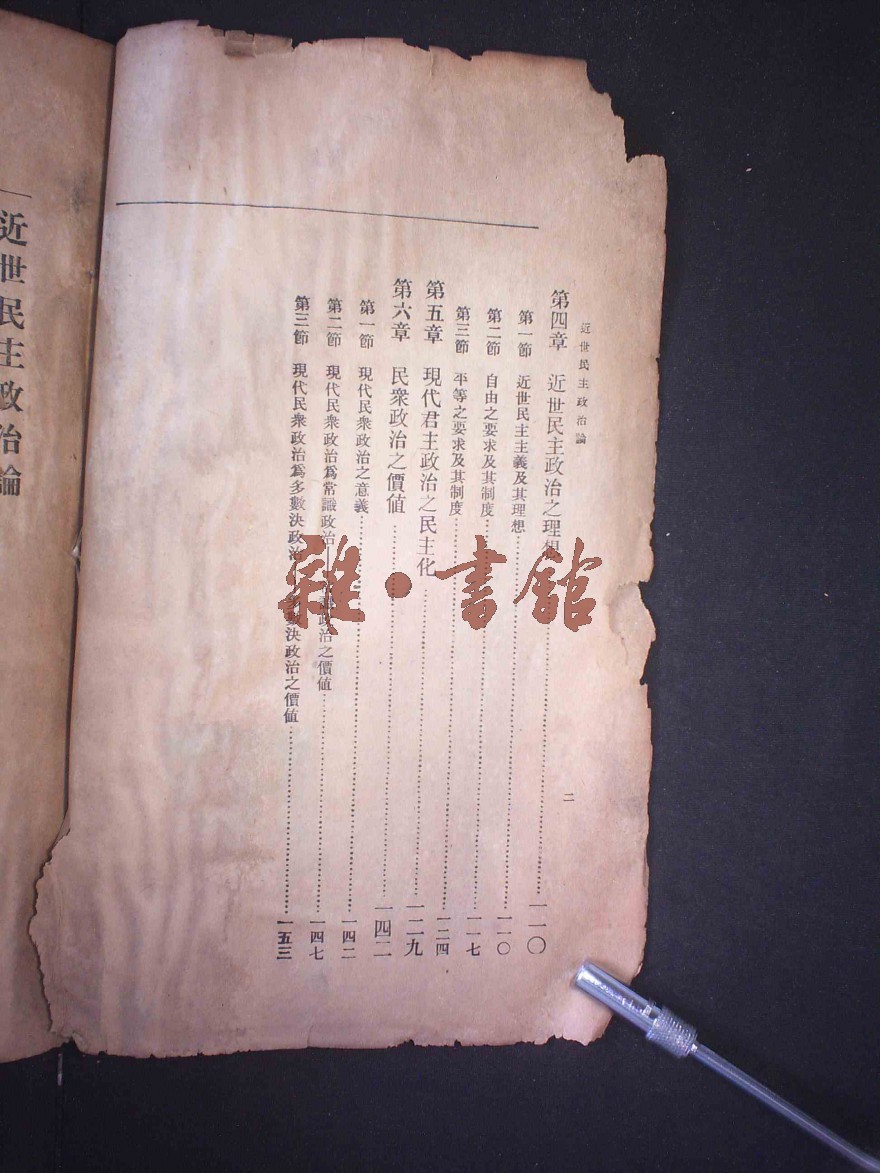 近世民主政治論
二
第四章 近世民主政治之理想……一一〇
第一節 近世民主主義及其理想……一一〇
第二節 自由之要求及其制度……一一七
第三節 平等之要求及其制度……一二四
第五章 現代君主政治之民主化……一二九
第六章 民衆政治之價値……一四二
第一節 現代民衆政治之意義……一四二
第二節 現代民衆政治爲常識政治 政治之價値……一四七
第三節 現代民衆政治爲多數決政治 多數決政治之價値……一五三
近世民主政治論
雜·書館